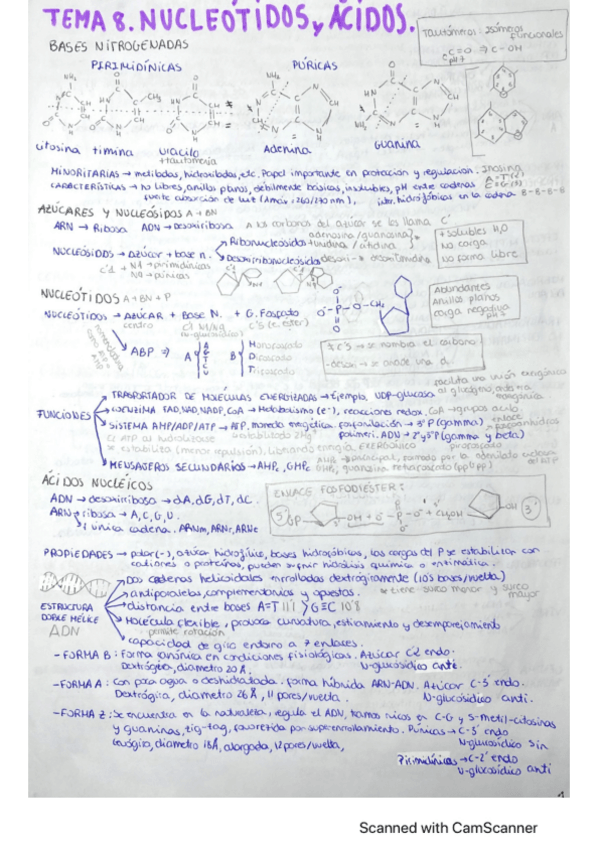 TEMA 8. NUCLEÓTIDOS y ÁCIDOS.
Tautómeros: isómeros funcionales
C=O ⇒ C-OH
BASES NITROGENADAS
PIRIMIDÍNICAS PÚRICAS
Citosina timina Uracilo Adenina Guanina
+tautomería
MINORITARIAS → metiladas, hidroxiladas, etc. Papel importante en protección y regulación. Inosina
CARACTERÍSTICAS → No libres, anillos planos, debilmente básicas, insolubles, pH entre cadenas
fuerte absorción de luz (λmax: 260/270 nm), hidrofóbicas en la cadena B-B-B-B
AZÚCARES Y NUCLEÓSIDOS A + BN
ARN → Ribosa ADN → Desoxirribosa A los carbonos del azúcar se les llama C'
NUCLEÓSIDOS → Azúcar + base n.
Ribonucleósidos adenosina/guanosina uridina/citidina
Desoxirribonucleósidos desoxi- desoxitimidina
C'1 + N1 → pirimidínicas
+ N9 → púricas
+ solubles H2O
No carga
No forma libre
NUCLEÓTIDOS A + BN + P
NUCLEÓTIDOS → AZÚCAR + Base N. + G. Fosfato
centro C1 N1/N9 C'5 (e. ester)
(N-glucosídico)
nomenclatura
ABP ⇒ A B
A G T C U
Monofosfato
Difosfato
Trifosfato
Abundantes
Anillos planos
carga negativa
pH
→ se nombra el carbono
-desoxi → se añade una d.
FUNCIONES
TRASPORTADOR DE MOLÉCULAS ENERGIZADAS → Ejemplo, UDP-glucosa facilita una unión exergónica
COENZIMA FAD, NAD, NADP, CoA → Metabolismo (e-), reacciones redox, CoA → grupos acilo
SISTEMA AMP/ADP/ATP → ATP. moneda energética. fosforilación → 3º P (gamma) enlace
El ATP al hidrolizarse estabilizado Mg polimeri. ADN → 2º y 3º P (gamma y beta)
se estabiliza (menor repulsión), liberando energía EXERGÓNICO pirofosfato
MENSAJEROS SECUNDARIOS → AMPc, GMPc
guanosina tetrafosfato (ppGpp)
ÁCIDOS NUCLÉICOS
ADN → desoxirribosa → dA, dG, dT, dC.
ARN → ribosa → A, C, G, U.
1 única cadena. ARNm, ARNr, ARNt
ENLACE FOSFODIÉSTER:
5' P OH + O- P O- + CH2OH OH 3'
PROPIEDADES → polar (-), azúcar hidrofílico, bases hidrofóbicas, las cargas del P se estabilizan con
cationes o proteínas, pueden sufrir hidrólisis química o enzimática.
ESTRUCTURA DOBLE HÉLICE ADN
Dos cadenas helicoidales enrolladas dextrógiramente (10'5 bases/vuelta)
antiparalelas, complementarias y opuestas. * tiene surco menor y surco mayor
distancia entre bases A=T 11'1 G≡C 10'8
Molécula flexible, provoca curvatura, estiramiento y desemparejamiento
permite rotación
capacidad de giro entorno a 7 enlaces.
- FORMA B: Forma canónica en condiciones fisiológicas. Azúcar C2' endo.
Dextrógira, diametro 20 Å. N-glucosídico anti.
- FORMA A: Con poca agua o deshidratada. forma híbrida ARN-ADN. Azúcar C-3' endo.
Dextrógira, diametro 26 Å, 11 pares/vuelta. N-glucosídico anti.
- FORMA Z: Se encuentra en la naturaleza, regula el ADN, tramos ricos en C-G y 5-metil-citosinas
y guaninas, zig-zag, favorecida por superenrollamiento. Púricas → C-3' endo
levógira, diametro 18Å, alargada, 12 pares/vuelta, N-glucosídico sin
Pirimidínicas → C-2' endo
N-glucosídico anti
1
Scanned with CamScanner